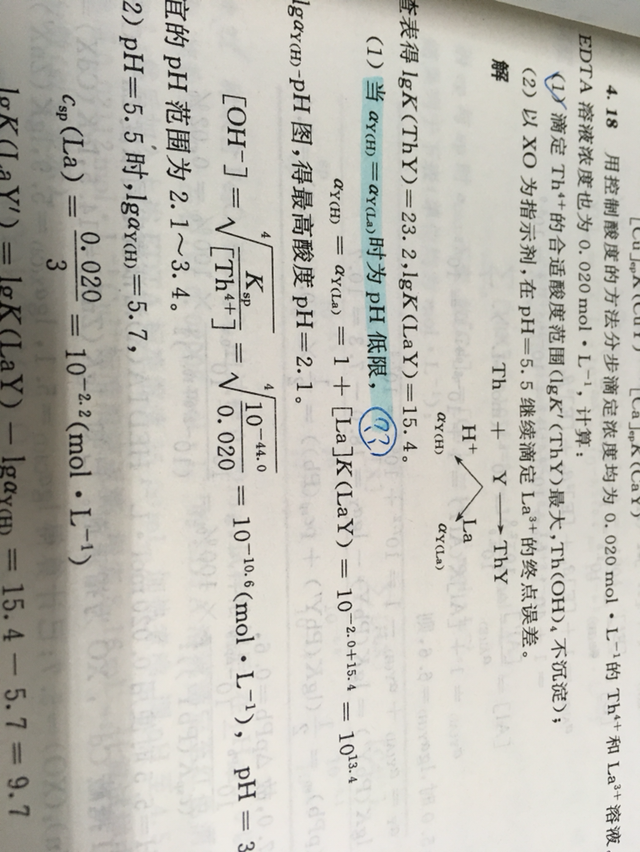 [Cd]spK(CdY) [Ca]spK(CaY)
4.18 用控制酸度的方法分步滴定浓度均为 0.020 mol·L⁻¹的 Th⁴⁺和 La³⁺溶液,
EDTA 溶液浓度也为 0.020 mol·L⁻¹, 计算:
(1) 滴定 Th⁴⁺的合适酸度范围(lgK′(ThY)最大,Th(OH)₄不沉淀);
(2) 以 XO 为指示剂,在 pH=5.5 继续滴定 La³⁺的终点误差。
解
Th + Y ⟶ ThY
H⁺ La
αY(H) αY(La)
查表得 lgK(ThY)=23.2,lgK(LaY)=15.4。
(1) 当 αY(H)=αY(La)时为 pH 低限, (??)
αY(H) = αY(La) = 1 + [La]K(LaY) = 10⁻²·⁰⁺¹⁵·⁴ = 10¹³·⁴
lgαY(H)-pH 图,得最高酸度 pH=2.1。
[OH⁻] = ⁴√(Ksp/[Th⁴⁺]) = ⁴√(10⁻⁴⁴·⁰/0.020) = 10⁻¹⁰·⁶(mol·L⁻¹), pH = 3
宜的 pH 范围为 2.1～3.4。
2) pH=5.5 时,lgαY(H)=5.7,
csp(La) = 0.020/3 = 10⁻²·²(mol·L⁻¹)
lgK(LaY′) = lgK(LaY) − lgαY(H) = 15.4 − 5.7 = 9.7